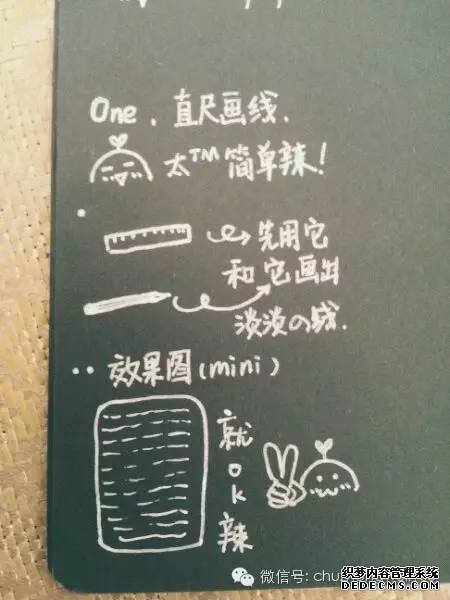 One、直尺画线.
太TM简单辣！
先用它
和它画出
淡淡の线.
效果图(mini)
就ok辣
微信号: chu
织梦内容管理系统
DEDECMS.COM